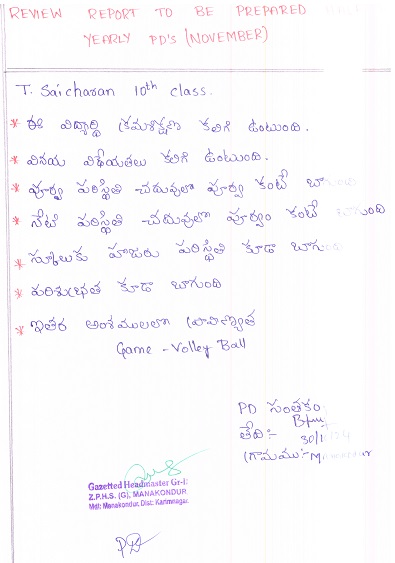 REVIEW REPORT TO BE PREPARED
YEARLY PD's (NOVEMBER)
T. Saicharan 10th class.
* ఈ విద్యార్థి క్రమశిక్షణ కలిగి ఉంటుంది.
* వినయ విధేయతలు కలిగి ఉంటుంది.
* పూర్వ పరిస్థితి చదువులో పూర్వ కంటే
* నేటి పరిస్థితి చదువులో పూర్వం కంటే బాగుంది
* స్కూలుకు హాజరు పరిస్థితి కూడా బాగుంది
* పరిశుభ్రత కూడా బాగుంది
* ఇతర అంశములలో ప్రావీణ్యత
Game - Volley Ball
PD సంతకం
తేది:- 30/1
గ్రామము:-
Gazetted Headmaster Gr-I:
Z.P.H.S. (G), MANAKONDUR
Mdl: Manakondur, Dist: Karimnagar.